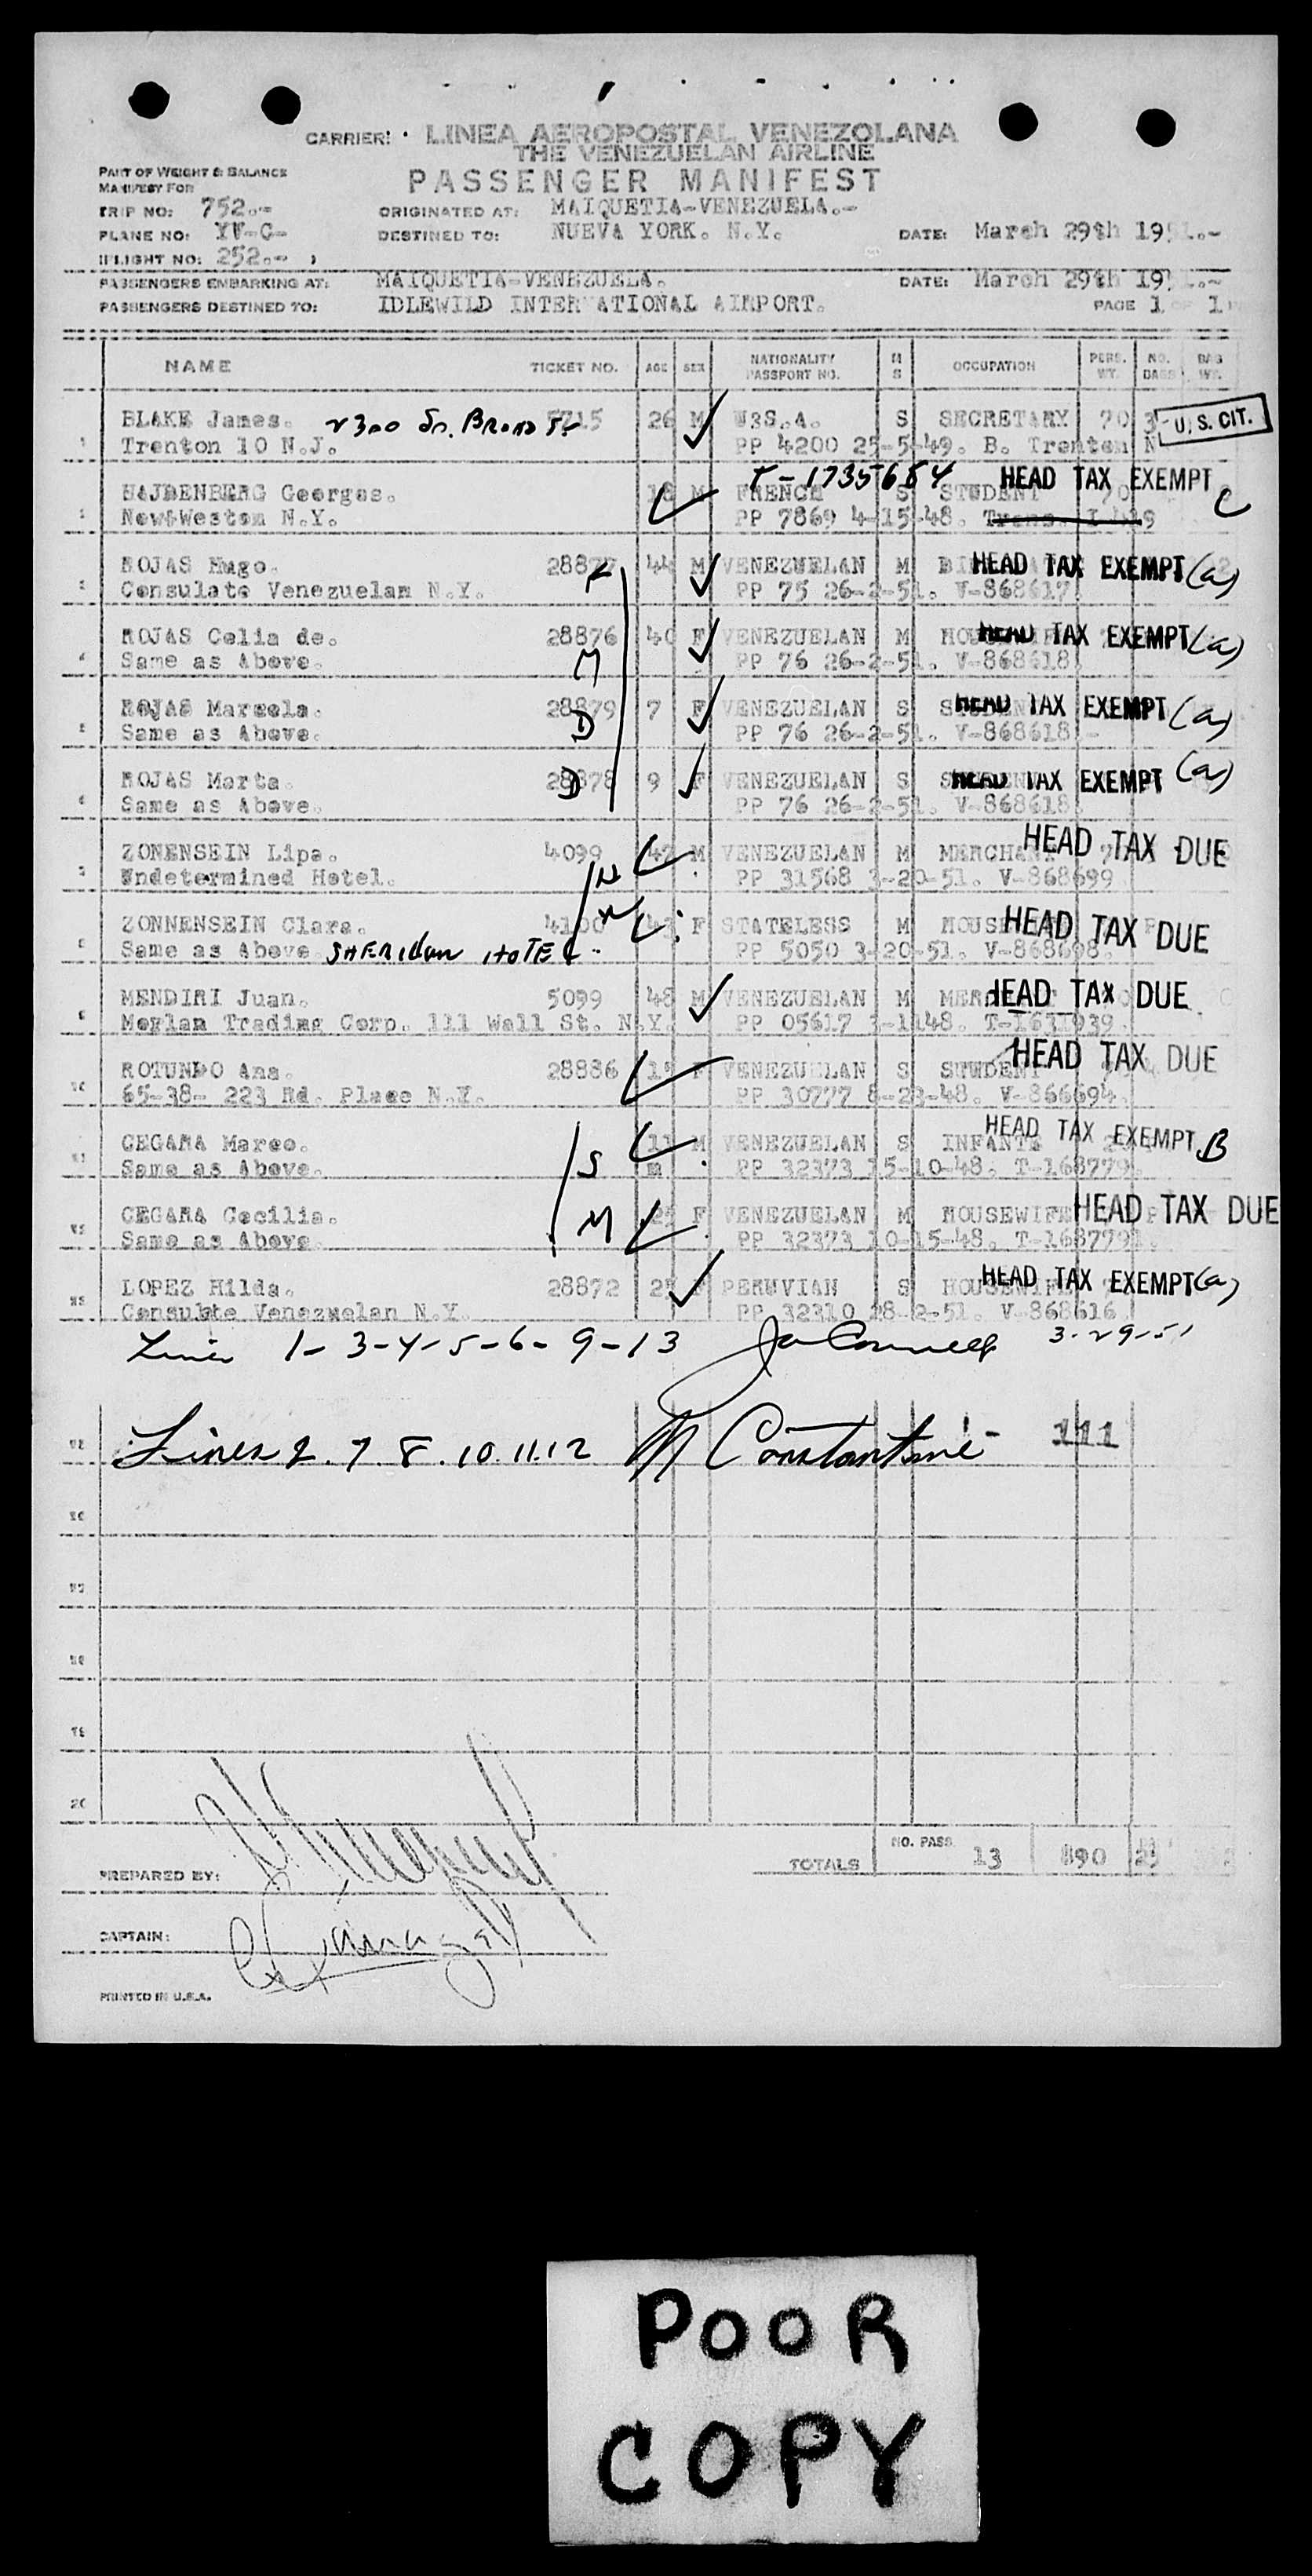 CARRIER: LINEA AEROPOSTAL VENEZOLANA
THE VENEZUELAN AIRLINE
PASSENGER MANIFEST
PART OF WEIGHT & BALANCE
MANIFEST FOR
TRIP NO: 752.--
ORIGINATED AT: MAIQUETIA-VENEZUELA.-
PLANE NO: YV-C-
DESTINED TO: NUEVA YORK. N.Y.
DATE: March 29th 1951.-
FLIGHT NO: 252.--
PASSENGERS EMBARKING AT: MAIQUETIA-VENEZUELA.
DATE: March 29th 1951.-
PASSENGERS DESTINED TO: IDLEWILD INTERNATIONAL AIRPORT.
PAGE 1 OF 1
NAME TICKET NO. AGE SEX NATIONALITY PASSPORT NO. M S OCCUPATION PERS. WT. NO. BAGS BAG WT.
BLAKE James. 2300 So. Broad St 5715 26 M U3S.A. S SECRETARY 70 3 U.S. CIT.
Trenton 10 N.J. PP 4200 25-5-49. B. Trenton N
T-1735684 HEAD TAX EXEMPT C
HAJDENBERG Georges. 18 M FRENCH S STUDENT 70
New&Weston N.Y. PP 7869 4-15-48.
ROJAS Hugo. 28877 44 M VENEZUELAN M HEAD TAX EXEMPT (a)
Consulate Venezuelan N.Y. PP 75 26-2-51. V-868617
ROJAS Celia de. 28876 M 40 F VENEZUELAN M HEAD TAX EXEMPT (a)
Same as Above. PP 76 26-2-51. V-868618
ROJAS Marcela. 28879 D 7 F VENEZUELAN S HEAD TAX EXEMPT (a)
Same as Above. PP 76 26-2-51. V-868618
ROJAS Marta. 28878 D 9 F VENEZUELAN S HEAD TAX EXEMPT (a)
Same as Above. PP 76 26-2-51. V-868618
ZONENSEIN Lipa. 4099 H 42 M VENEZUELAN M MERCHANT HEAD TAX DUE
Undetermined Hotel. PP 31568 3-20-51. V-868699
ZONNENSEIN Clara. 4100 W 43 F STATELESS M HEAD TAX DUE
Same as Above SHERIDAN HOTEL PP 5050 3-20-51. V-868698.
MENDIRI Juan. 5099 48 M VENEZUELAN M HEAD TAX DUE
Morlan Trading Corp. 111 Wall St. N.Y. PP 05617 3-1148. T-1631939.
ROTUNDO Ana. 28886 F VENEZUELAN S STUDENT HEAD TAX DUE
65-38- 223 Rd. Place N.Y. PP 30777 8-23-48. V-866694.
CEGARA Marco. S 11 M VENEZUELAN S INFANT HEAD TAX EXEMPT B
Same as Above. m PP 32373 15-10-48. T-168779
CEGARA Cecilia. M 25 F VENEZUELAN M HOUSEWIFE HEAD TAX DUE
Same as Above PP 32373 10-15-48. T-1687791.
LOPEZ Hilda. 28872 F PERUVIAN S HOUSEWIFE HEAD TAX EXEMPT (a)
Consulate Venezuelan N.Y. PP 32310 28-2-51. V-868616
Lines 1-3-4-5-6-9-13 3-29-51
Lines 2.7.8.10.11.12 M Constantine 111
TOTALS NO. PASS. 13 890
PREPARED BY:
CAPTAIN:
PRINTED IN U.S.A.
POOR
COPY